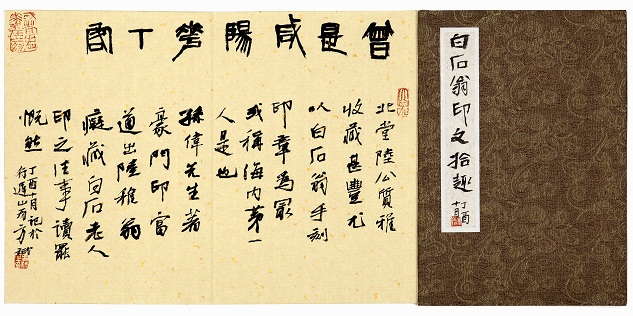 白石翁印文拾趣
丁酉
十月
曾是咸陽花下客
北堂陸公質雅
收藏甚豐尤
以白石翁手刻
印章為最
或稱海内第一
人是也
孫偉先生著
豪門印富
道出陸雅翁
癡藏白石老人
印之往事讀罷
慨然
丁酉十月記於
行遲山房方